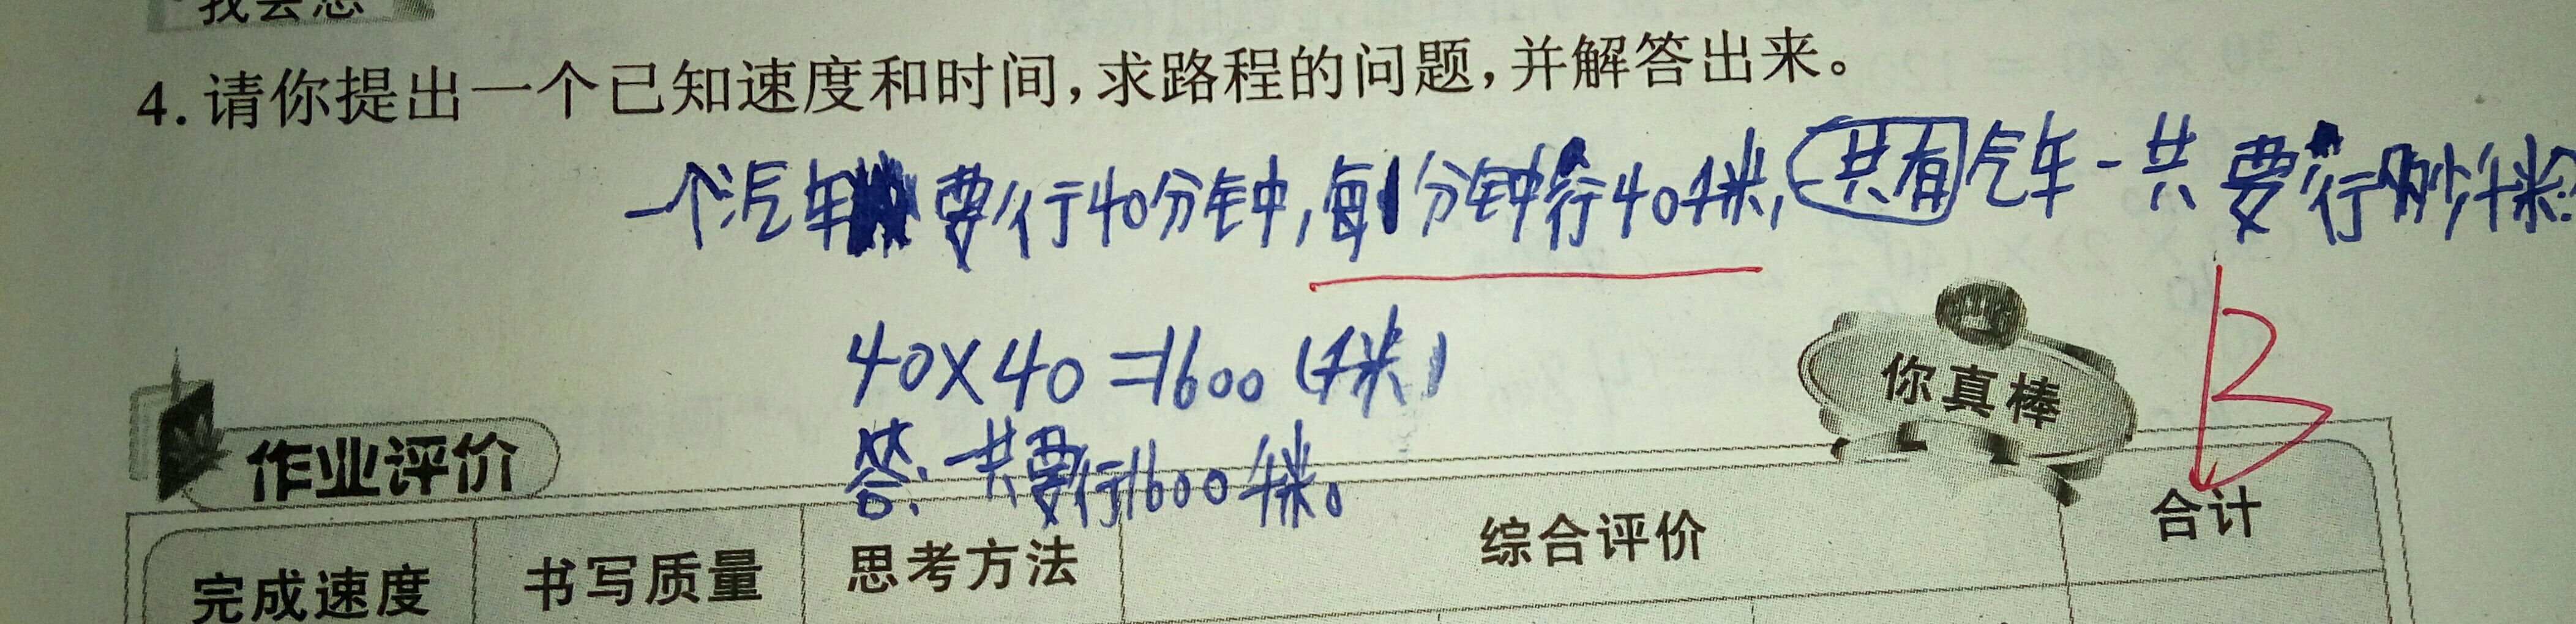 我会想
4.请你提出一个已知速度和时间,求路程的问题,并解答出来。
一个汽车要行40分钟,每1分钟行40千米,共有汽车一共要行多少千米?
40×40=1600(千米)
答:一共要行1600千米。
你真棒
B
作业评价
完成速度 书写质量 思考方法 综合评价 合计